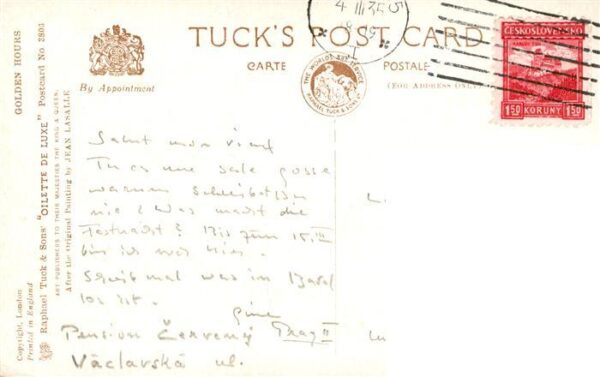 4 III 35
TUCK'S POST CARD
CARTE POSTALE
By Appointment
(FOR ADDRESS ONLY)
THE WORLD'S ART SERVICE
RAPHAEL TUCK & SONS LTD
ČESKOSLOVENSKO
1.50 KORUNY 1.50
GOLDEN HOURS
Raphael Tuck & Sons' "OILETTE DE LUXE" Postcard No. 3805
ART PUBLISHERS TO THEIR MAJESTIES THE KING & QUEEN.
After the Original Painting by JEAN LASALLE
Copyright, London
Printed in England
Salut mon vieux
Tu es une sale gosse
warum schreibst Du
nie? Was macht die
Fastnacht? Bis zum 15. III
bin ich noch hier.
Schreib mal was in Basel
los ist.
Pension Červený Prag II
Václavská ul.